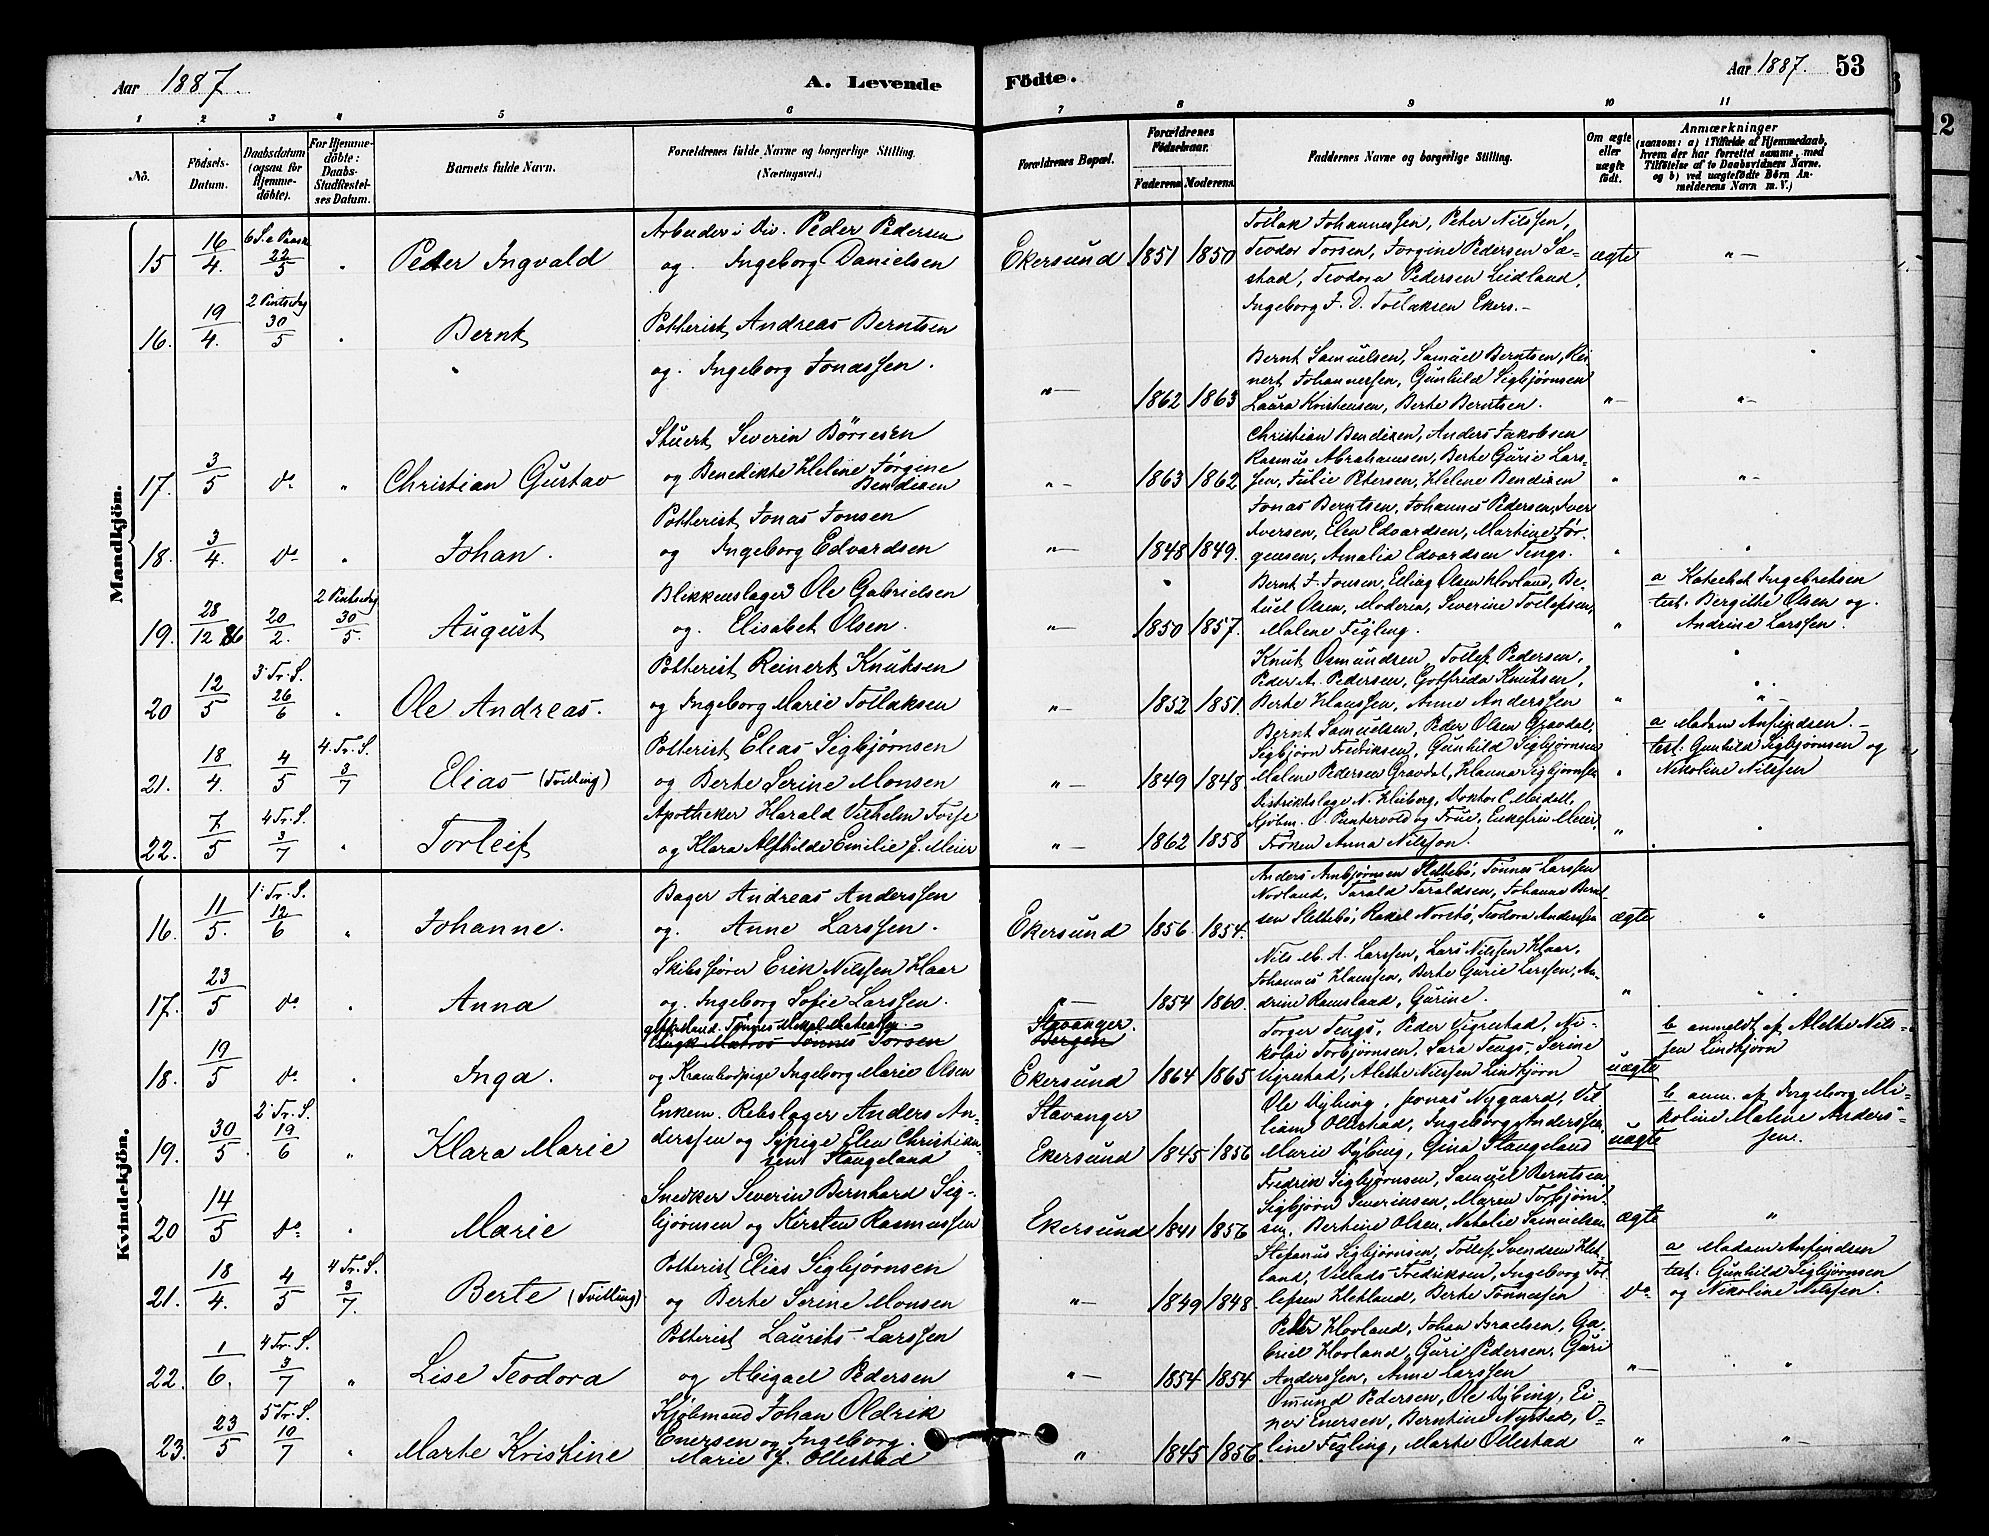 Aar 1887.
A. Levende
Födte.
Aar 1887.
53
1 2 3 4 5 6 7 8 9 10 11
No.
Födsels-Datum.
Daabsdatum (ogsaa for Hjemmedöbte).
For Hjemmedöbte: Daabs-Stadfestelses Datum.
Barnets fulde Navn.
Forældrenes fulde Navne og borgerlige Stilling. (Næringsvei.)
Forældrenes Bopæl.
Forældrenes Födselsaar.
Faderens. Moderens.
Faddernes Navne og borgerlige Stilling.
Om ægte eller uægte födt.
Anmærkninger
(saasom: a) i Tilfælde af Hjemmedaab, hvem der har forrettet samme, med Tilföielse af to Daabsvidners Navne. og b) ved uægtefödte Börn Anmelderens Navn m. V.)
Mandkjön.
15 16/4. 6 S. e Paask 22/5 " Peder Ingvald
Arbeider i Div. Peder Pedersen
og Ingeborg Danielsen
Ekersund 1851 1850
Tollak Johannessen, Peter Nilssen,
Teodor Torsen, Jorgine Pedersen Sæ-
stad, Teodora Pedersen Leidland,
Ingeborg J. D. Tollaksen Ekers.-
ægte "-
16. 19/4. 2 Pintsedg 30/5 " Bernt
Potterist Andreas Berntsen
og. Ingeborg Jonassen.
"- 1862 1863
Bernt Samuelsen, Samuel Berntsen, Rei-
nert Johannessen, Gunhild Sigbjørnsen
Laura Kristensen, Berte Berntsen.
"- "-
17. 3/5 do " Christian Gustav
Stuert Severin Börresen
og Benedikte Helene Jørgine
Bendixen
"- 1863 1862
Christian Bendixen, Anders Jakobsen
Rasmus Abrahamsen, Berte Gurie Lars-
sen, Julie Petersen, Helene Bendixen
" "-
18. 3/4. do " Johan.
Potterist Jonas Jonsen
og Ingeborg Edvardsen
"- 1848 1849.
Jonas Berntsen, Johannes Pedersen, Iver
Iversen, Elen Edvardsen, Martine Jør-
gensen, Amalia Edvardsen Tengs.
" "
19. 28/12 86 20/2. 2 Pintsedg 30/5. August
Blikkenslager Ole Gabrielsen
og. Elisabet Olsen.
"- 1850 1857.
Bernt J. Jonsen, Elling Olsen Hovland, Be-
tuel Olsen, Severine Tollefsen,
Malene Fegling.
"
a Katechet Ingebretsen
test: Bergithe Olsen og.
Andrine Larssen.
20 12/5 3 Tr. S. 26/6 " Ole Andreas.
Potterist Reinert Knutsen
og Ingeborg Marie Tollaksen
"- 1852 1851.
Knut Osmundsen, Tollef Pedersen,
Peder A. Pedersen, Gotfrida Knutsen,
Berte Hanssen, Anne Anderssen
" "-
21. 18/4. 4/5 4 Tr. S. 3/7 Elias (Tvilling)
Potterist Elias Sigbjørnsen
og Berte Serine Monsen
"- 1849 1848.
Bernt Samuelsen, Peder Olsen Gravdal,
Sigbjørn Fredriksen, Gunhild Sigbjørnsen
Malene Pedersen Gravdal, Hanna Sigbjørnsen
"
a Madam Anfindsen.-
test: Gunhild Sigbjørnsen og
Nikoline Nilssen
22. 7/5 4 Tr. S. 3/7 " Torleif
Apotheker Harald Vilhelm Torse
og Klara Alfhilde Emilie f. Meier
"- 1862 1858
Distriktslæge N. Heiberg, Doktor C Meidell,
Kjøbm. O. Puntervold og Frue, Enkefru Meier,
Frøken Anna Nilsson.
" "
Kvindekjön.
16. 11/5. 1 Tr. S. 12/6 " Johanne.
Bager Andreas Anderssen
og. Anne Larssen.
Ekersund 1856. 1854.
Anders Ambjørnsen Slettebö, Tönnes Larssen
Norland, Tarald Taraldsen, Johanne Bernt-
sen Slettebö, Rakel Norstö, Teodora Anderssen
ægte "
17. 23/5 do " Anna
Skibsfører Erik Nilssen Haar
og. Ingeborg Sofie Larssen.
"- 1854 1860.
Nils M. A. Larssen, Lars Nilssen Haar,
Johannes Hanssen, Berte Gurie Larssen, An-
drine Ramsland, Gurine.
" "
18. 19/5 do " Inga.
Tönnes Mikal Mateas
Ungk. Matros Tönnes Torsen
og Krambodpige Ingeborg Marie Olsen
Stavanger.
Bergen
Ekersund 1864 1865
Torger Tengs, Peder Vigrestad, Ni-
kolai Torbjørnsen, Sara Tengs, Serine
Vigrestad, Alethe Nilssen Lindhjørn
uægte
b anmeldt af Alethe Nils-
sen Lindhjørn
19. 30/5. 2 Tr. S. 19/6 " Klara Marie
Enkem. Rebslager Anders An-
derssen og Sypige Elen Christian-
sen Stangeland
Stavanger
Ekersund 1845 1856
Ole Dybing, Jonas Nygaard, Vil-
liam Ollestad, Ingeborg Anderssen,
Marie Dybing, Gina Stangeland
uægte
b anm. af Ingeborg Mi-
koline Malene Anders-
sen.
20 14/5 do " Marie
Snedker Severin Bernhard Sig-
bjørnsen og Kirsten Rasmussen
Ekersund 1841 1856
Fredrik Sigbjørnsen, Samuel Berntsen
Sigbjørn Severinsen, Maren Torbjørn-
sen, Bertine Olsen, Natalie Samuelsen
ægte "
21. 18/4. 4/5 4 Tr. S. 3/7. Berte (Tvilling)
Potterist Elias Sigbjørnsen
og Berte Serine Monsen
"- 1849 1848.
Stefanus Sigbjørnsen, Tollef Svendsen Het-
land, Villads Fredriksen, Ingeborg Tol-
lefsen Hetland, Berte Tönnesen
do
a Madam Anfindsen
test: Gunhild Sigbjørnsen
og Nikoline Nilssen.
22. 1/6. 4 Tr. S. 3/7 " Lise Teodora
Potterist Laurits Larssen
og Abigael Pedersen
"- 1854 1854
Peter Hovland, Johan Israelsen, Ga-
briel Hovland, Guri Pedersen, Guri
Anderssen, Anne Larssen
"- "
23. 23/5 5 Tr. S. 10/7 " Marte Kristine
Kjøbmand Johan Oldrik
Enersen og Ingeborg.
Marie f. Ollestad
" 1845 1856.
Omund Pedersen, Ole Dybing, Ei-
ner Enersen, Berntine Nyrstad, O-
line Fegling, Marte Ollestad
" "-
12